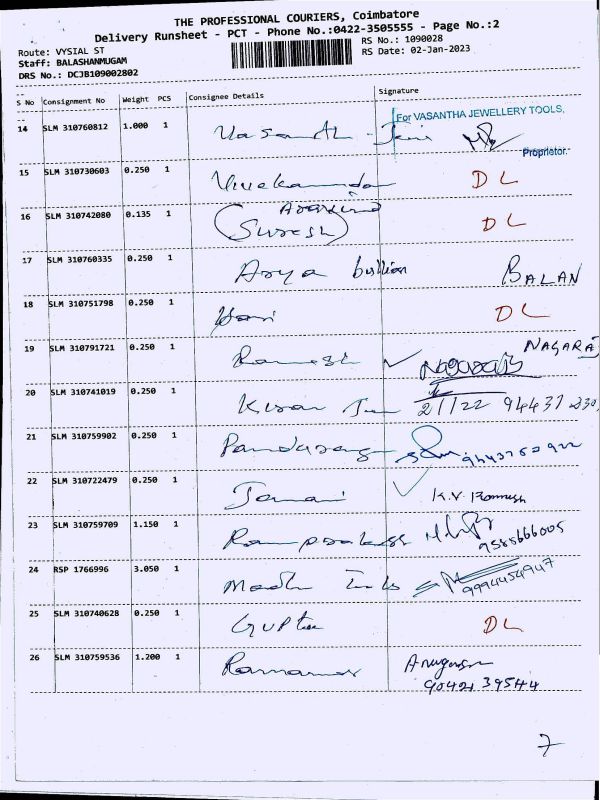 THE PROFESSIONAL COURIERS, Coimbatore
Delivery Runsheet - PCT - Phone No.:0422-3505555 - Page No.:2
Route: VYSIAL ST
RS No.: 1090028
Staff: BALASHANMUGAM
RS Date: 02-Jan-2023
DRS No.: DCJB109002802
S No Consignment No Weight PCS Consignee Details Signature
For VASANTHA JEWELLERY TOOLS,
14 SLM 310760812 1.000 1
Proprietor.
15 SLM 310730603 0.250 1 DL
16 SLM 310742080 0.135 1 (SURESH) DL
17 SLM 310760335 0.250 1 Arya bullion BALAN
18 SLM 310751798 0.250 1 Hari DL
19 SLM 310791721 0.250 1 Ramesh NAGARAJ
20 SLM 310741019 0.250 1 Kiran
21 SLM 310759902 0.250 1
22 SLM 310722479 0.250 1 K.V
23 SLM 310759709 1.150 1 9585666005
24 RSP 1766996 3.050 1 9994454947
25 SLM 310740628 0.250 1 Gupta DL
26 SLM 310759536 1.200 1
90421 39544
7